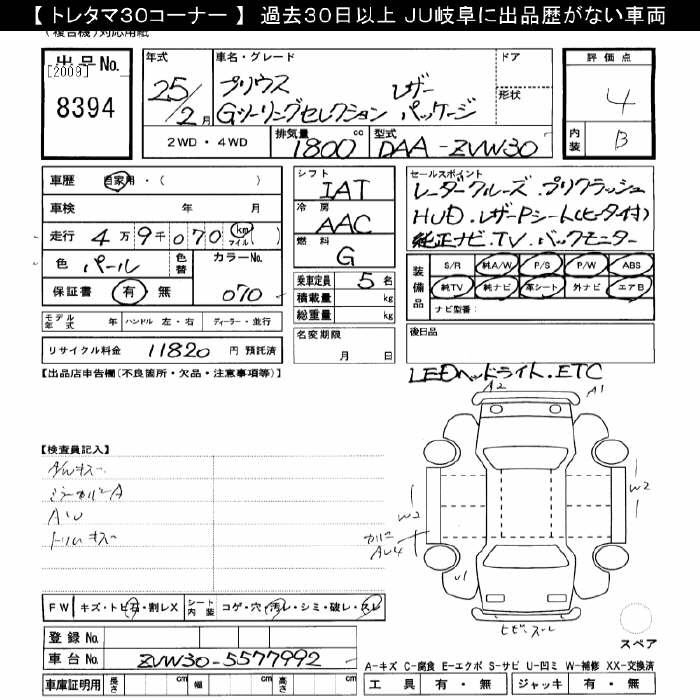 【 トレタマ30コーナー 】 過去30日以上 JU岐阜に出品歴がない車両
(複合機)対応用紙
出品No.
[2009]
8394
年式
25/2月
車名・グレード
プリウス レザー
Gツーリングセレクション パッケージ
ドア
形状
評価点
4
内装 B
2WD・4WD
排気量 1800 cc
型式 DAA-ZVW30
車歴 自家用・( )
車検 年 月
走行 4万9千070 km マイル ( )
色 パール 色替 カラーNo. 070
保証書 有 無
モデル年式 年 ハンドル 左・右 ディーラー・並行
リサイクル料金 11820 円 預託済
シフト
IAT
冷房
AAC
燃料
G
乗車定員 5 名
積載量 kg
総重量 kg
名変期限
月 日
セールスポイント
レーダークルーズ.プリクラッシュ
HUD.レザーPシート(ヒータ付)
純正ナビ.TV.バックモニター
装備品
S/R 純A/W P/S P/W ABS
純TV 純ナビ 革シート 外ナビ エアB
ナビ型番:
後日品
LEDヘッドライト.ETC
【出品店申告欄(不良箇所・欠品・注意事項等)】
【検査員記入】
A2 A1
W2 W2
U1
F/W キズ・トビ石・割レX シート内装 コゲ・穴・汚レ・シミ・破レ・スレ
登録No.
車台No. ZVW30-5577992
車庫証明用 長さ cm 幅 cm 高さ cm
スペア
A-キズ C-腐食 E-エクボ S-サビ U-凹ミ W-補修 XX-交換済
工具 有・無 ジャッキ 有・無